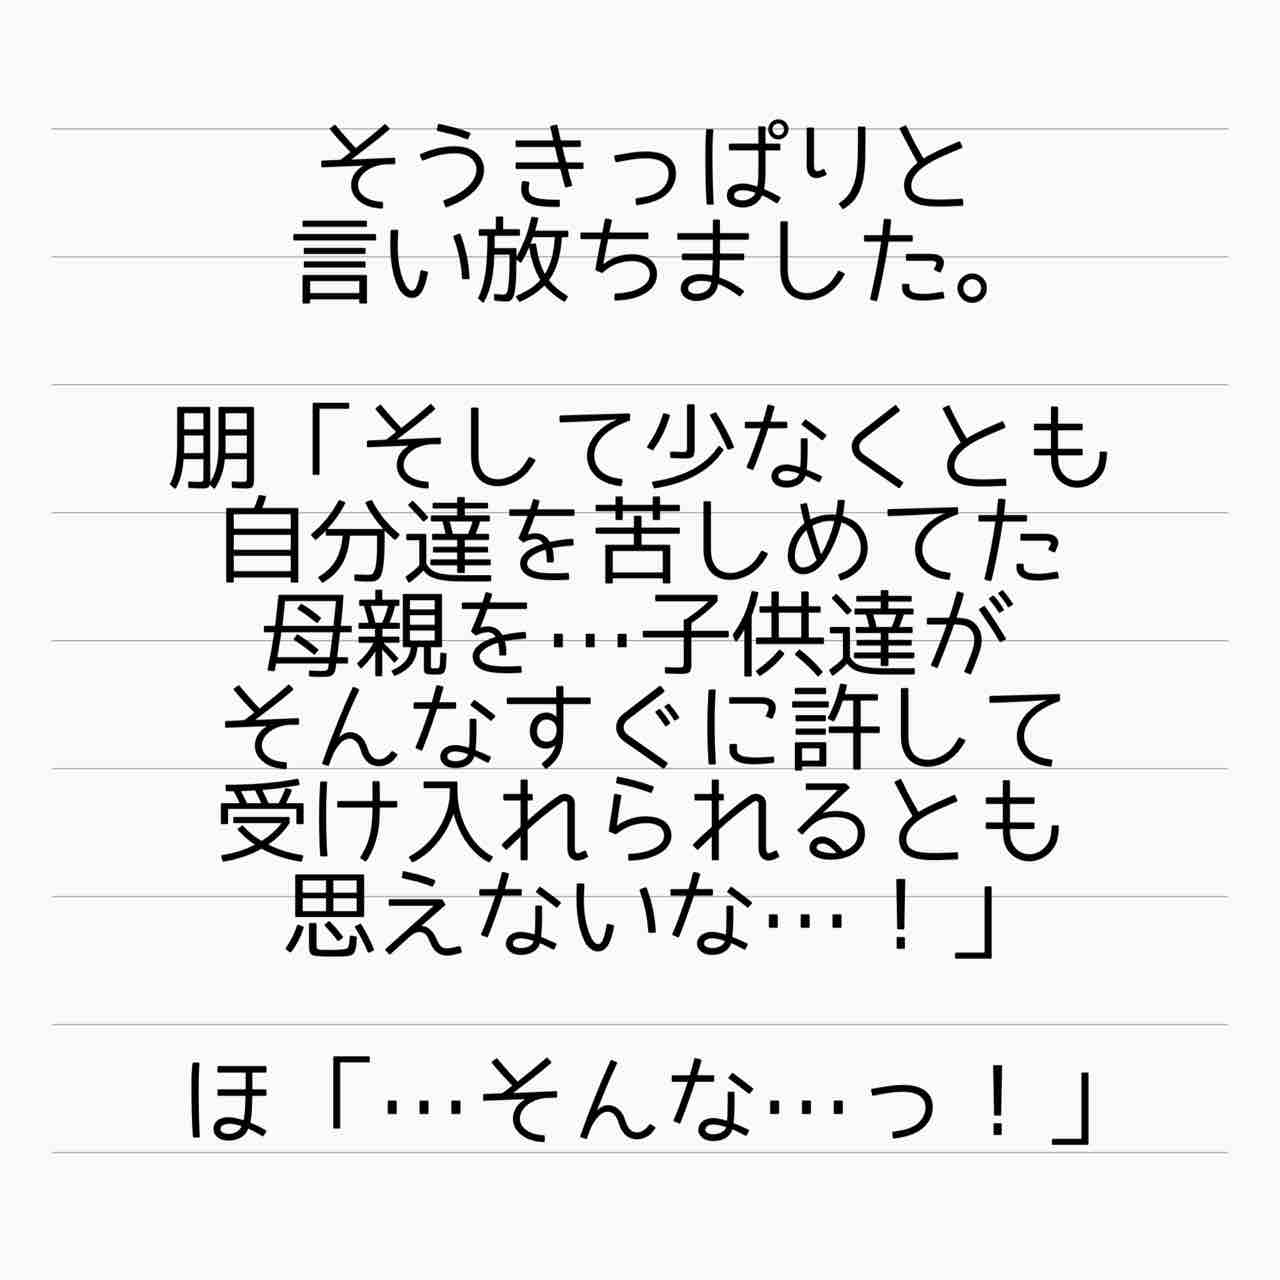 そうきっぱりと
言い放ちました。
朋「そして少なくとも
自分達を苦しめてた
母親を…子供達が
そんなすぐに許して
受け入れられるとも
思えないな…！」
ほ「…そんな…っ！」